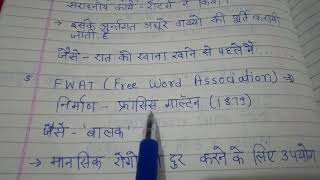 सराहनीय कार्य - रॉटर्स ने किया।
→ इसके अन्तर्गत अधूरे वाक्यों की पूर्ति कराया
जाता है
जैसे - रात को खाना खाने से पहले मैं...
5 FWAT (Free Word Association) →
निर्माण - फ्रांसिस गाल्टन (1879)
जैसे - "बालक"
→ मानसिक रोगों दूर करने के लिए उपयोग